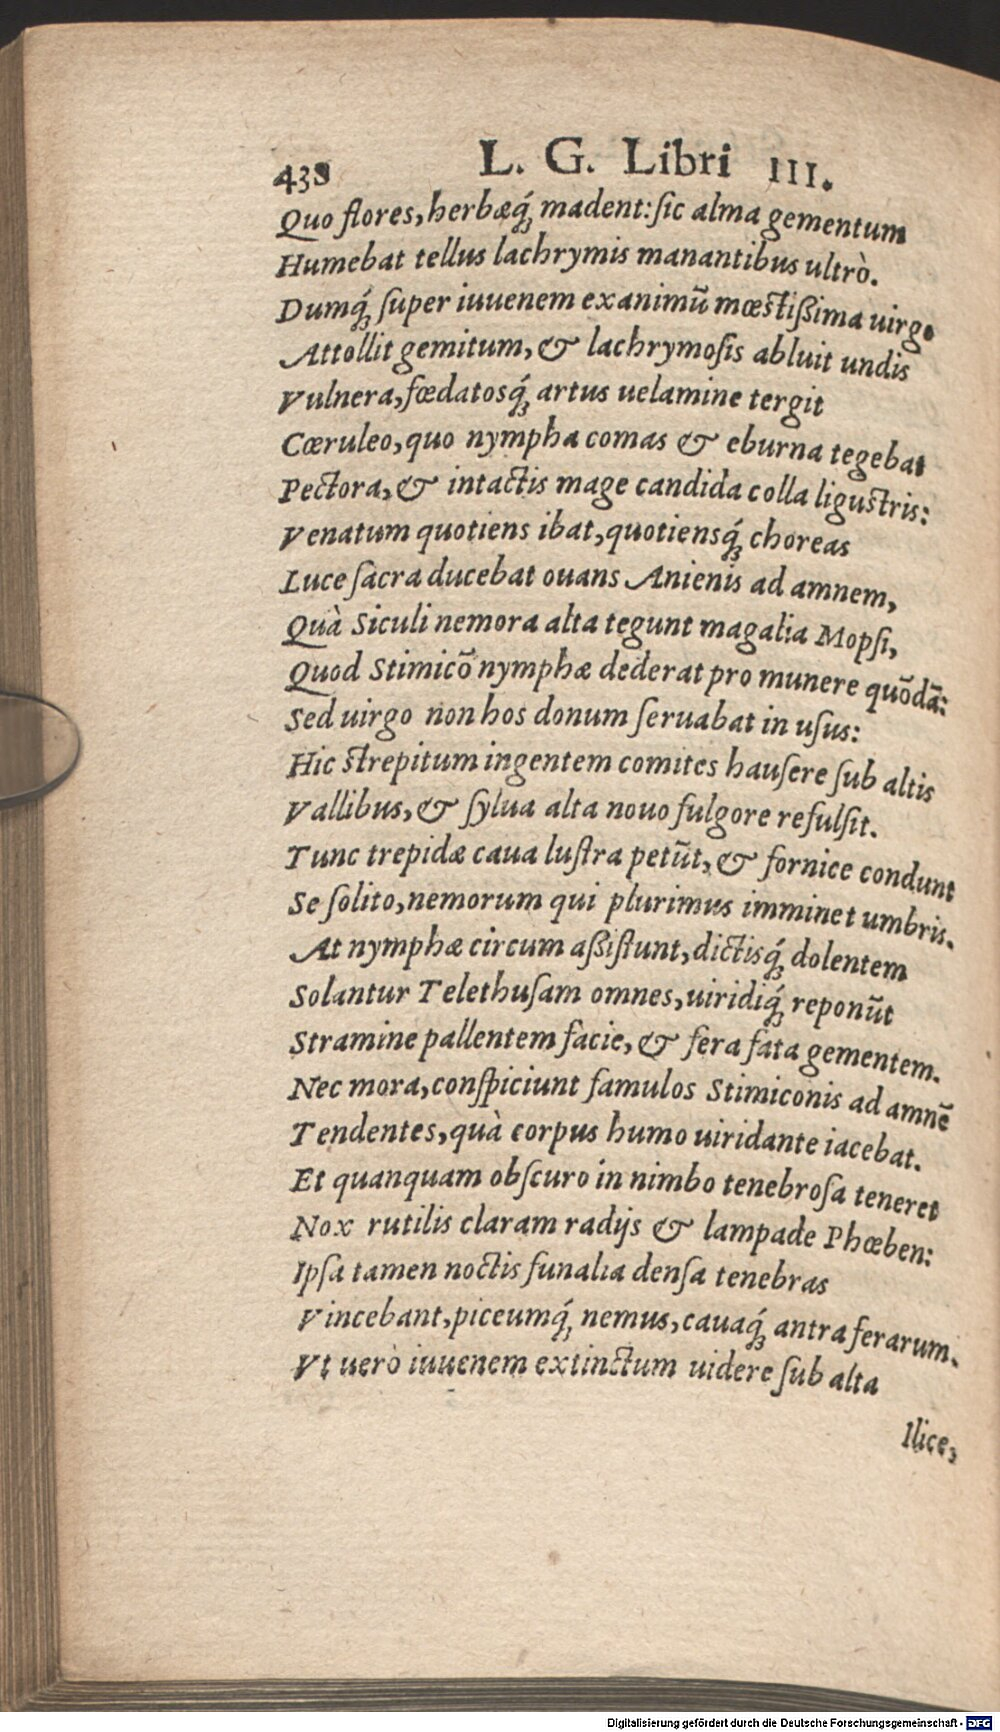 438 L. G. Libri III.
Quo flores, herbæq́; madent: ſic alma gementum
Humebat tellus lachrymis manantibus ultrò.
Dumq́; ſuper iuuenem exanimū mœſtißima uirgo
Attollit gemitum, & lachrymoſis abluit undis
Vulnera, fœdatosq́; artus uelamine tergit
Cœruleo, quo nympha comas & eburna tegebat
Pectora, & intactis mage candida colla liguſtris:
Venatum quotiens ibat, quotiensq́; choreas
Luce ſacra ducebat ouans Anienis ad amnem,
Quà Siculi nemora alta tegunt magalia Mopſi,
Quod Stimicō nymphæ dederat pro munere quōdā:
Sed uirgo non hos donum ſeruabat in uſus:
Hic ſtrepitum ingentem comites hauſere ſub altis
Vallibus, & ſylua alta nouo fulgore refulſit.
Tunc trepidæ caua luſtra petūt, & fornice condunt
Se ſolito, nemorum qui plurimus imminet umbris.
At nymphæ circum aßiſtunt, dictisq́; dolentem
Solantur Telethuſam omnes, uiridiq́; reponūt
Stramine pallentem facie, & fera fata gementem.
Nec mora, conſpiciunt famulos Stimiconis ad amnē
Tendentes, quà corpus humo uiridante iacebat.
Et quanquam obſcuro in nimbo tenebroſa teneret
Nox rutilis claram radijs & lampade Phœben:
Ipſa tamen noctis funalia denſa tenebras
Vincebant, piceumq́; nemus, cauaq́; antra ferarum.
Vt uerò iuuenem extinctum uidere ſub alta
Ilice,
Digitalisierung gefördert durch die Deutsche Forschungsgemeinschaft - DFG